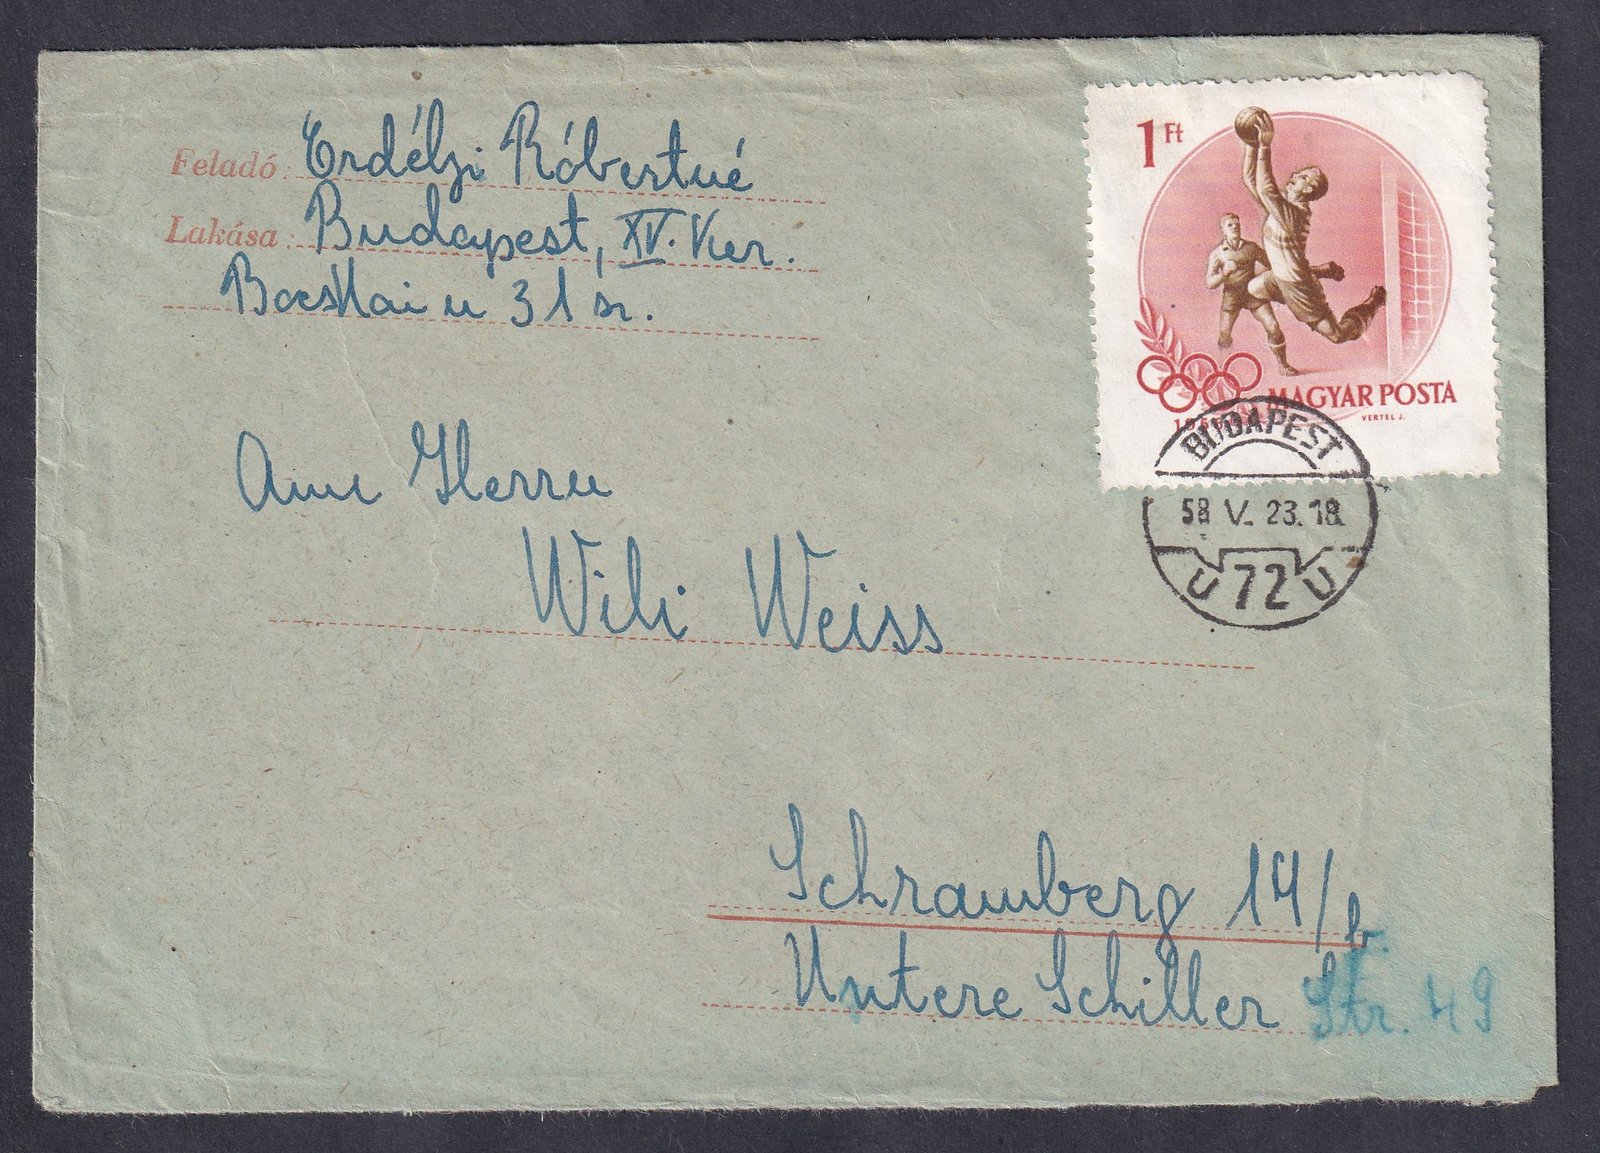 Feladó: Erdélyi Róbertné
Lakása: Budapest, XV. Ker.
Bocskai u 31 sz.
1 Ft
MAGYAR POSTA
VERTEL J.
BUDAPEST
58 V. 23. 18
72
An Herrn
Wili Weiss
Schramberg 14/b.
Untere Schiller Str. 49